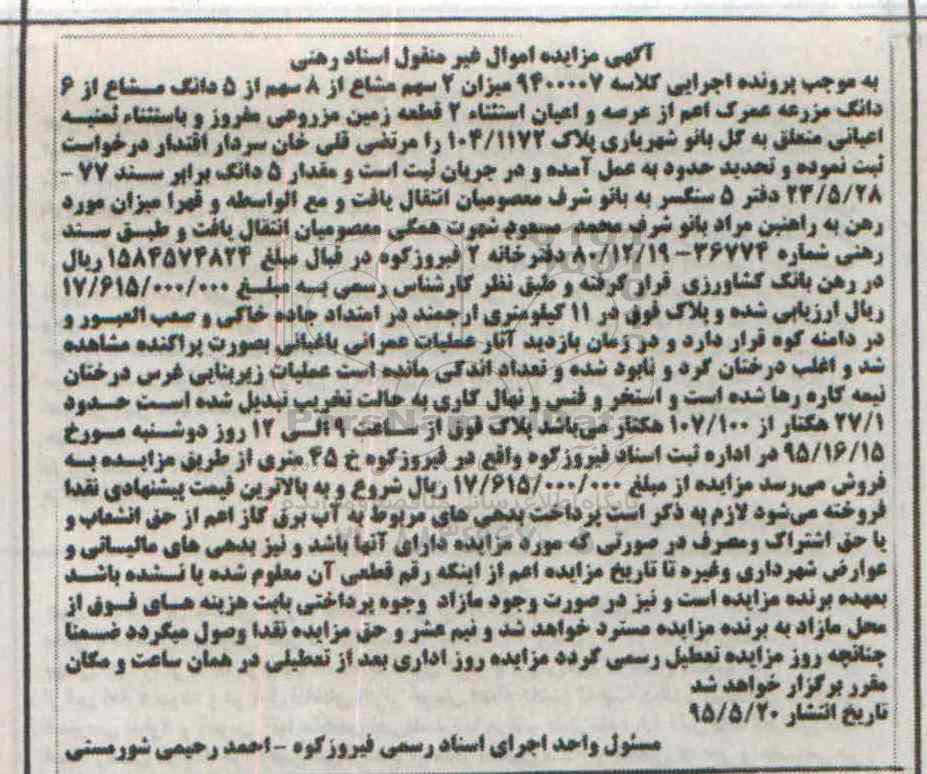 آگهی مزایده اموال غیر منقول اسناد رهنی
به موجب پرونده اجرایی کلاسه ۹۴۰۰۰۰۷ میزان ۲ سهم مشاع از ۸ سهم از ۵ دانگ مشاع از ۶
دانگ مزرعه عمرک اعم از عرصه و اعیان استثناء ۲ قطعه زمین مزروعی مفروز و باستثناء ثمنیه
اعیانی متعلق به گل بانو شهریاری پلاک ۱۰۴/۱۱۷۲ را مرتضی قلی خان سردار اقتدار درخواست
ثبت نموده و تحدید حدود به عمل آمده و در جریان ثبت است و مقدار ۵ دانگ برابر سند ۷۷ -
۲۳/۵/۲۸ دفتر ۵ سنگسر به بانو شرف معصومیان انتقال یافت و مع الواسطه و قهرا میزان مورد
رهن به راهنین مراد بانو شرف محمد مسعود شهرت همگی معصومیان انتقال یافت و طبق سند
رهنی شماره ۳۶۷۷۴ - ۸۰/۱۲/۱۹ دفترخانه ۲ فیروزکوه در قبال مبلغ ۱۵۸۴۵۷۴۸۲۴ ریال
در رهن بانک کشاورزی قرار گرفته و طبق نظر کارشناس رسمی به مبلغ ۱۷/۶۱۵/۰۰۰/۰۰۰
ریال ارزیابی شده و پلاک فوق در ۱۱ کیلومتری ارجمند در امتداد جاده خاکی و صعب العبور و
در دامنه کوه قرار دارد و در زمان بازدید آثار عملیات عمرانی باغبانی بصورت پراکنده مشاهده
شد و اغلب درختان گرد و نابود شده و تعداد اندکی مانده است عملیات زیربنایی غرس درختان
نیمه کاره رها شده است و استخر و فنس و نهال کاری به حالت تخریب تبدیل شده است حدود
۲۷/۱ هکتار از ۱۰۷/۱۰۰ هکتار می‌باشد پلاک فوق از ساعت ۹ الی ۱۲ روز دوشنبه مورخ
۹۵/۱۶/۱۵ در اداره ثبت اسناد فیروزکوه واقع در فیروزکوه خ ۴۵ متری از طریق مزایده به
فروش می‌رسد مزایده از مبلغ ۱۷/۶۱۵/۰۰۰/۰۰۰ ریال شروع و به بالاترین قیمت پیشنهادی نقدا
فروخته می‌شود لازم به ذکر است پرداخت بدهی های مربوط به آب برق گاز اعم از حق انشعاب و
یا حق اشتراک ومصرف در صورتی که مورد مزایده دارای آنها باشد و نیز بدهی های مالیاتی و
عوارض شهرداری وغیره تا تاریخ مزایده اعم از اینکه رقم قطعی آن معلوم شده یا نشده باشد
بعهده برنده مزایده است و نیز در صورت وجود مازاد وجوه پرداختی بابت هزینه های فوق از
محل مازاد به برنده مزایده مسترد خواهد شد و نیم عشر و حق مزایده نقدا وصول میگردد ضمنا
چنانچه روز مزایده تعطیل رسمی گردد مزایده روز اداری بعد از تعطیلی در همان ساعت و مکان
مقرر برگزار خواهد شد
تاریخ انتشار ۹۵/۵/۲۰
مسئول واحد اجرای اسناد رسمی فیروزکوه - احمد رحیمی شورمستی
ParsNamadData